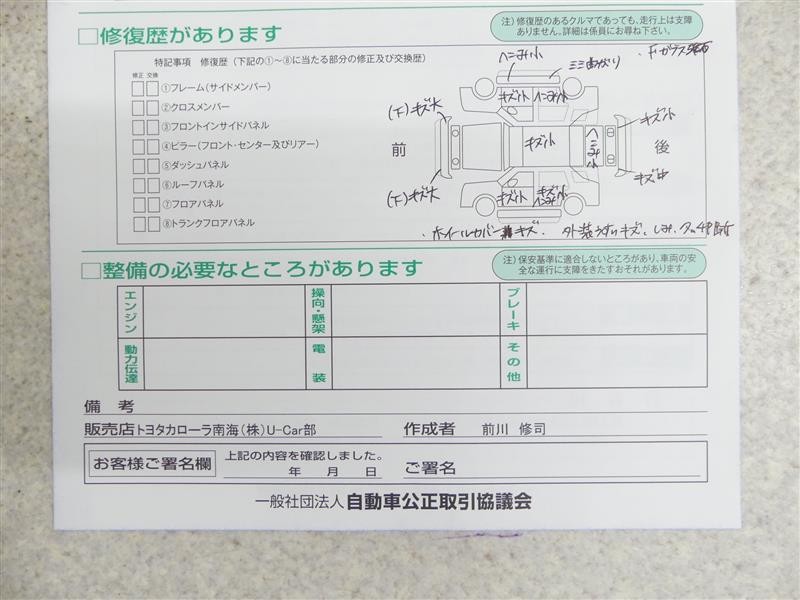 □修復歴があります
注）修復歴のあるクルマであっても、走行上は支障
ありません。詳細は係員にお尋ね下さい。
特記事項 修復歴（下記の①～⑧に当たる部分の修正及び交換歴）
修正 交換
①フレーム（サイドメンバー）
②クロスメンバー
③フロントインサイドパネル
④ピラー（フロント・センター及びリアー）
⑤ダッシュパネル
⑥ルーフパネル
⑦フロアパネル
⑧トランクフロアパネル
ヘこみ小
ミミ曲がり
Fガラス
キズ小 ヘこみ小
(下)キズ大
キズ小
前
キズ小
ヘこみ小
後
(下)キズ大
キズ中
キズ小
キズ小
ヘこみ小
・ホイールカバーキズ. 外装うすいキズ、しみ、
□整備の必要なところがあります
注）保安基準に適合しないところがあり、車両の安
全な運行に支障をきたすおそれがあります。
エンジン
操向・懸架
ブレーキ
動力伝達
電装
その他
備考
販売店 トヨタカローラ南海（株）U-Car部 作成者 前川 修司
お客様ご署名欄
上記の内容を確認しました。
年 月 日
ご署名
一般社団法人 自動車公正取引協議会